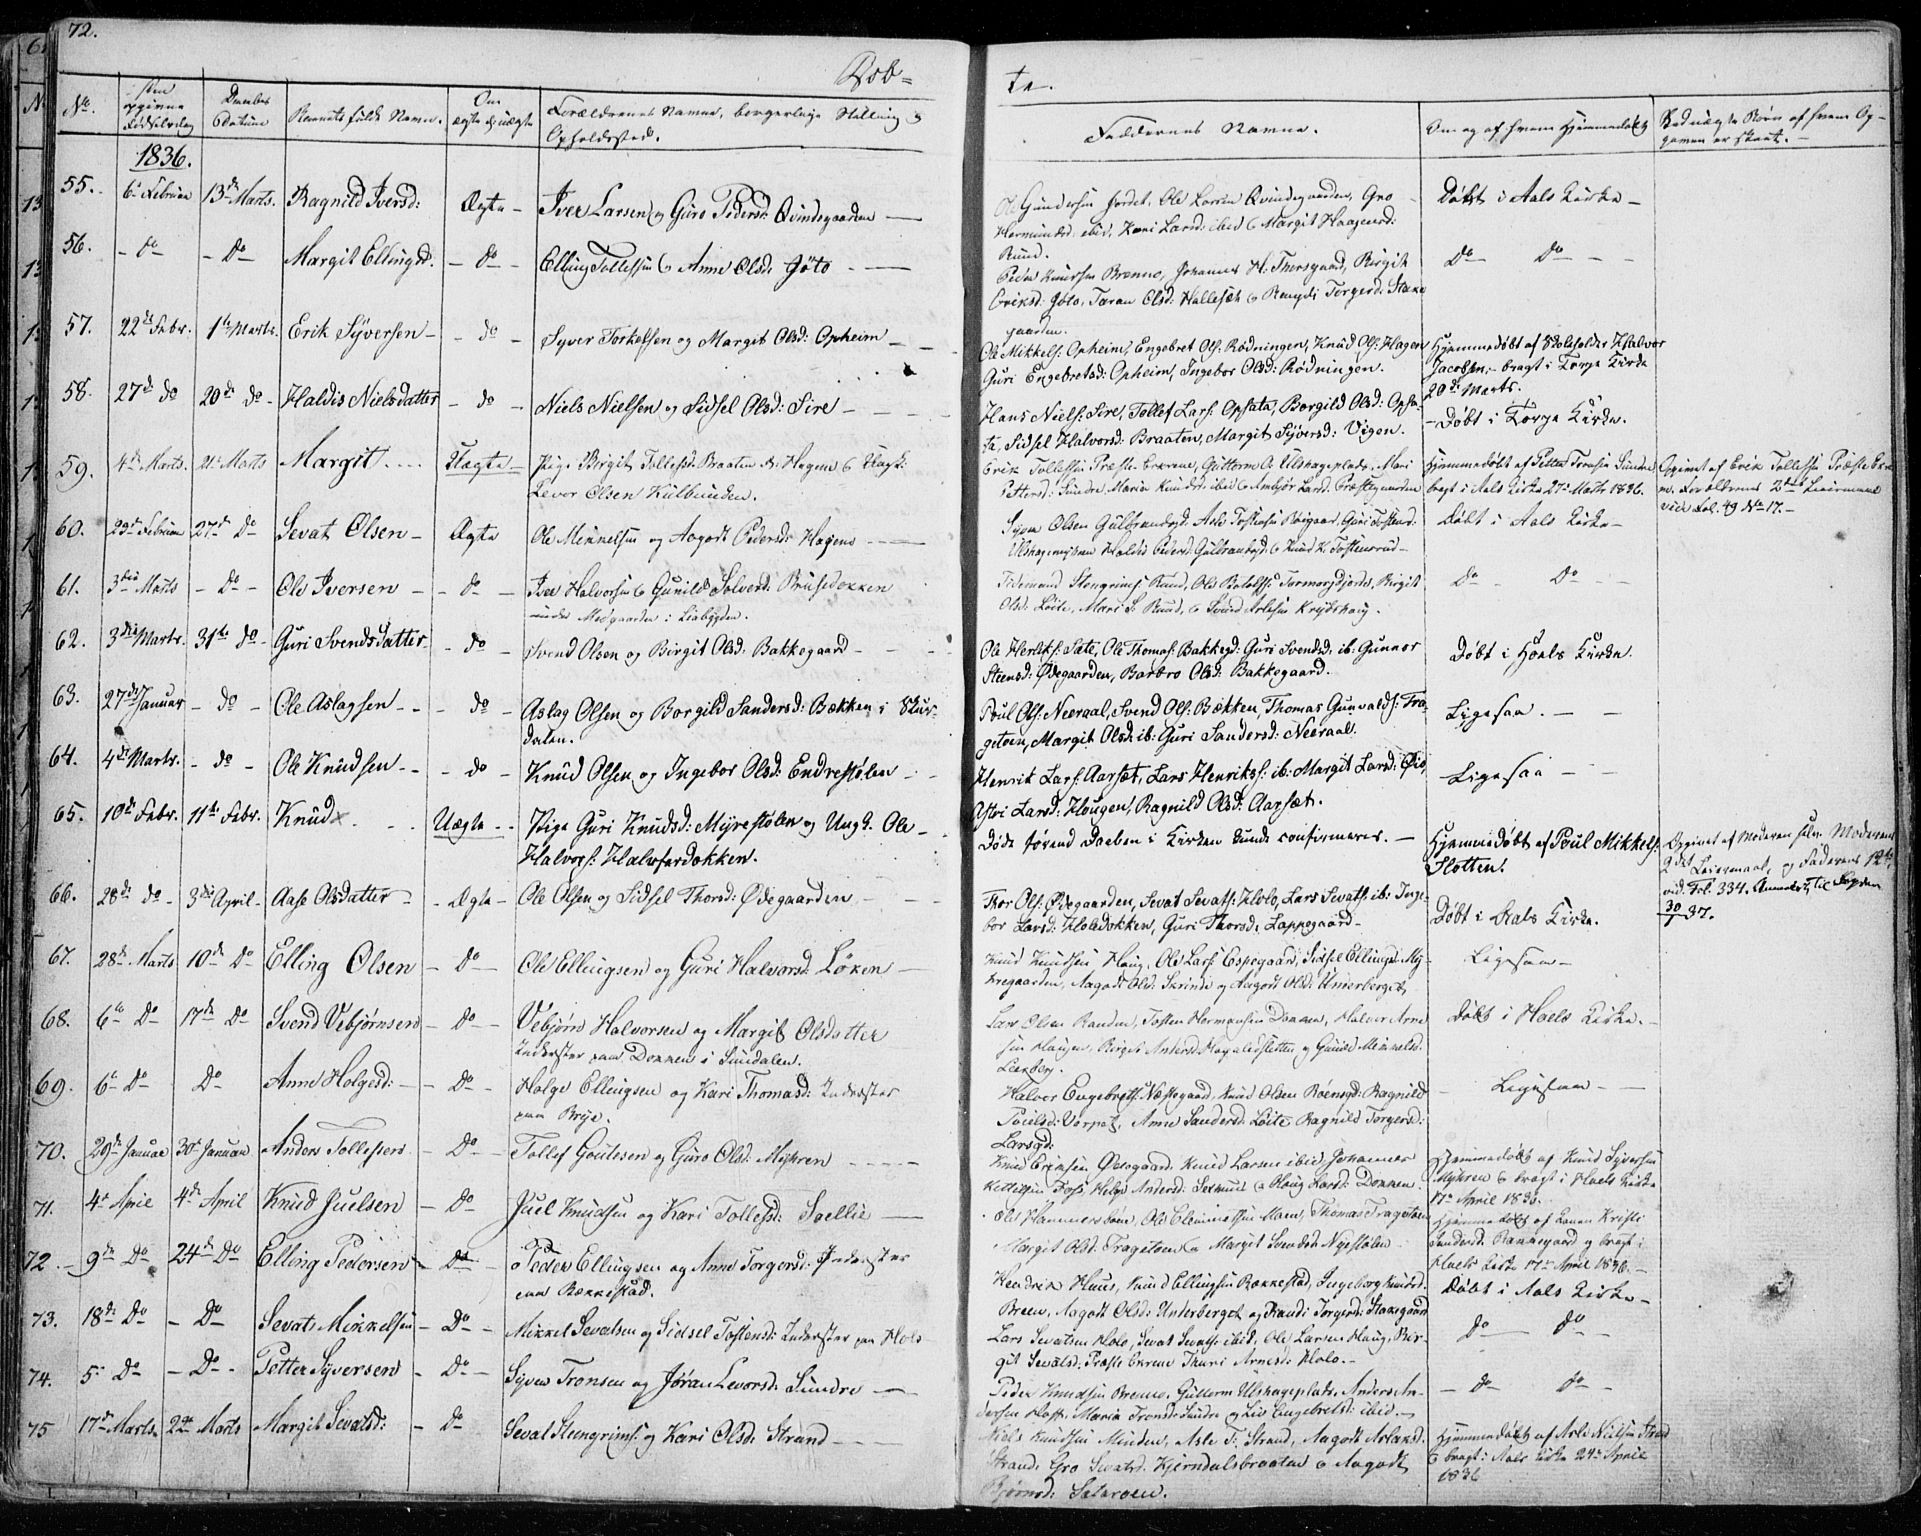 72.
Døb=
te.
No.
den opgivne Fødselsdag
Daabens Datum
Barnets fulde Navn.
Om ægte el: uægte
Forældrenes Navne, borgerlige Stilling og
Opholdssted.
Faddernes Navne.
Om og af hvem Hjemmedøbt
Ved uægte Børn af hvem Op-
gaven er skeet.
1836.
55. 6te Februar 13de Marts. Ragnild Iversd: Ægte Iver Larsen og Guro Pedersd: Qvindegaarden
Ole Gundersen Jordet, Ole Larsen Qvindegaarden, Gro
Hermundsd: ibid, Kari Larsd: ibid & Margit Haagensd:
Ruud.
Døbt i Aals Kirke
56. do do Margit Ellingsd. do Elling Tollefsen & Anne Olsd: Gjøto
Peder Knudsen Brenno, Johannes H. Thorsgaard, Birgit
Eriksd: Gjøto, Taran Olsd: Hallesæt & Rangdi Torgersd: Stave
gaarden.
Do Do
57. 22de Febr. 1te Marts. Erik Syversen do Syver Torkelsen og Margit Olsd: Opheim
Ole Mikkels: Opheim, Engebret Ols: Rødningen, Knud Ols: Hagen
Guri Engebretsd: Opheim, Ingebor Olsd: Rødningen.
Hjemmedøbt af Skoleholder Halvor
Jacobsen, bragt i Torpe Kirke
20de Marts.
58. 27de do 20de do Haldis Nielsdatter do Niels Nielsen og Sidsel Olsd: Sire
Hans Niels: Sire, Tollef Lars: Opsata, Borgild Olsd: Opsa-
ta, Sidsel Halvorsd: Braaten, Margit Syversd: Vigen.
Døbt i Torpe Kirke.
59. 4de Marts. 21de Marts Margit Uægte Pige Birgit Tollefsd: Braaten u: Hagen & Ungk:
Levor Olsen Kulbunden.
Erik Tollefsen Præste Exerene, Guttorm O: Ulshagsplads, Mari
Pettersd: Sundre, Maria Knudsd: ibid & Ambjør Larsd: Præstegaarden
Hjemmedøbt af Petter Tronsen Sundre
bragt i Aals Kirke 27de Marts 1836.
Opgivet af Erik Tollefsen Præste Exe
m. Forældrenes 2det Leiermaal
vide Fol. 49 No 17.
60. 29de Februar 27de Do Sevat Olsen Ægte Ole Mikkelsen og Aagodt Pedersd: Hagene
Syver Olsen Gulbrandsgd. Asle Tostensen Brigaar, Guri Tostensd:
Ulshagsmyhren Haldis Pedersd: Gulbrandsgd: & Knud K: Tostensrud
Døbt i Aals Kirke
61. 3die Marts Do Ole Iversen do Iver Halvorsen & Gunild Solversd: Brusedokken
under Medgaarden i Liabygden.
Tidemand Stengrims: Ruud, Ole Botolfs: Tormodsgjordet, Birgit
Olsd: Løite, Mari S: Ruud, & Svend Arlesen Krydshaug.
Do Do
62. 3die Marts. 31te do Guri Svendsdatter do Svend Olsen og Birgit Olsd: Bakkegaard
Ole Herleks: Sate, Ole Thomas: Bakkegd: Guri Svendsd: ib: Gunnor
Steensd: Ødegaarden, Barbro Olsd: Bakkegaard.
Døbt i Hoels Kirke.
63. 27de Januar do Ole Aslagsen do Aslag Olsen og Borgild Sandersd: Bækken i Skur-
dalen.
Poul Ols: Neeraal, Svend Ols: Bækken, Thomas Gunvalds: Tra-
getoen, Margit Olsd: ib: Guri Sandersd: Neeraal.
Ligesaa.
64. 4de Marts. do Ole Knudsen do Knud Olsen og Ingebor Olsd: Endrestølen
Henrik Lars: Aarsæt, Lars Henriks: ib: Margit Larsd: Øio,
Astri Larsd: Hougen, Ragnild Olsd: Aarsæt.
Ligesaa
65. 10de Febr. 11te Febr. Knud Uægte Pige Guri Knudsd: Myrestølen og Ungk. Ole
Halvors: Halvfardokken.
Døde førend Daaben i Kirken kunde confirmeres.
Hjemmedøbt af Poul Mikkels:
Slotten.
Opgivet af Moderen selv. Moderens
2det Leiermaal, og Faderens 1ste
vid. Fol. 334. Anmeldt til Fogden
30/7 37.
66. 28de do 3die April Aase Olsdatter Ægte Ole Olsen og Sidsel Thorsd: Ødegaarden
Thor Ols: Ødegaarden, Sevat Sevats: Holo, Lars Sevats: ib: Inge-
bor Larsd: Holedokken, Guri Thorsd: Lappegaard
Døbt i Aals Kirke.
67. 28de Marts 10de Do Elling Olsen Do Ole Ellingsen og Guri Halvorsd: Løken
Knud Knudsen Haug, Ole Lars: Espegaard, Sidsel Ellingsd: My-
hregaarden, Aagodt Olsd: Skrinde og Aagodt Olsd: Underberget,
Ligesaa
68. 6te Do 17de Do Svend Vebjørnsen Do Vebjørn Halvorsen og Margit Olsdatter
Inderster paa Dokken i Sundalen.
Lars Olsen Randen, Tosten Hermansen Dokken, Halvor Arne
sen Haugen, Birgit Andersd: Hagaledsletten og Gunild Mikkelsd:
Leerberg.
Døbt i Hoels Kirke.
69. 6te Do Do Anne Holgesd: Do Holge Ellingsen og Kari Thomasd: Inderster
paa Brye.
Halvor Engebrets: Næstegaard, Knud Olsen Roensgd: Ragnild
Poulsd: Vorpet, Anne Sandersd: Løite Ragnild Torgersd:
Larsgd:
Ligesaa
70. 29de Januar 30te Januar Anders Tollefsen Do Tollef Goutesen og Guro Olsd: Myhren
Knud Eriksen Ødegaard, Knud Larsen ibid, Johannes
Kettilsen Foss, Helge Andersd: & Haug Larsd: Dokken.
Hjemmedøbt af Knud Syversen
Myhren & bragt i Hoels Kirke
17de April 1836.
71. 4de April 4de April Knud Juelsen Do Juel Knudsen og Kari Tollefsd: Sællie
Ole Hammersbøen, Ole Clemmetsen Moen, Thomas Tragetoen
Margit Olsd: Tragetoen & Margit Svendsd: Nystølen
Hjemmedøbt af Konen Kristi
Sandersd: Bakkegaard og bragt i
Hoels Kirke 17de April 1836.
72. 9de Do 24de Do Elling Pedersen Do Peder Ellingsen og Anne Torgersd: Inderster
paa Rækkestad.
Hendrik Huus, Knud Ellingsen Rækkestad, Ingeborg Knudsd:
Breen, Aagodt Olsd: Underberget og Randi Torgersd: Stavegaard
Døbt i Aals Kirke
73. 18de Do Do Sevat Mikkelsen Do Mikkel Sevatsen og Sidsel Tostensd: Inderster paa Holo
Lars Sevatsen Holo, Sevat Sevats: ibid, Ole Larsen Haug, Bir-
git Sevatsd: Præste Exrene Thuri Arnesd: Holo.
Do Do
74. 5te Do Do Petter Syversen Do Syver Tronsen og Jøran Levorsd: Sundre
Peder Knudsen Brenno, Guttorm Ulshagsplads, Anders An-
dersen Hoff, Maria Tronsd: Sundre og Liv Engebretsd: ibid.
do do
75 17de Marts. 22de Marts Margit Sevatsd: Do Sevat Stengrims: og Kari Olsd: Strand
Niels Knudsen Minden, Asle T: Strand, Aagodt Aslaksd:
Strand, Gro Sevatsd: Kjerndalsbraaten & Aagodt
Bjørnsd: Sataroen.
Hjemmedøbt af Asle Nielsen Strand
& bragt i Aals Kirke 24de April
1836